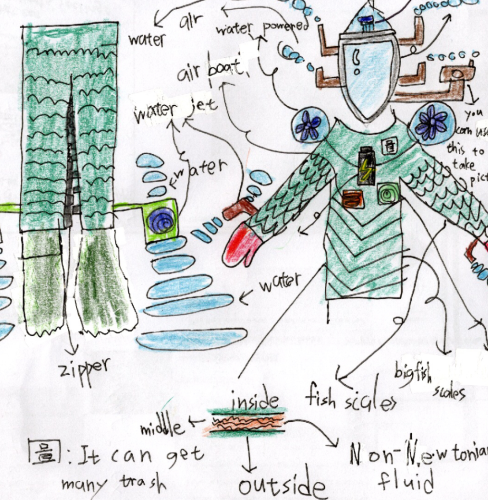 air
water
water powered
air boat
water jet
water
you
can use
this to
take
pict
water
zipper
inside
fish scales
bigfish
scales
middle
Non-Newtonian
fluid
음 : It can get
many trash
outside